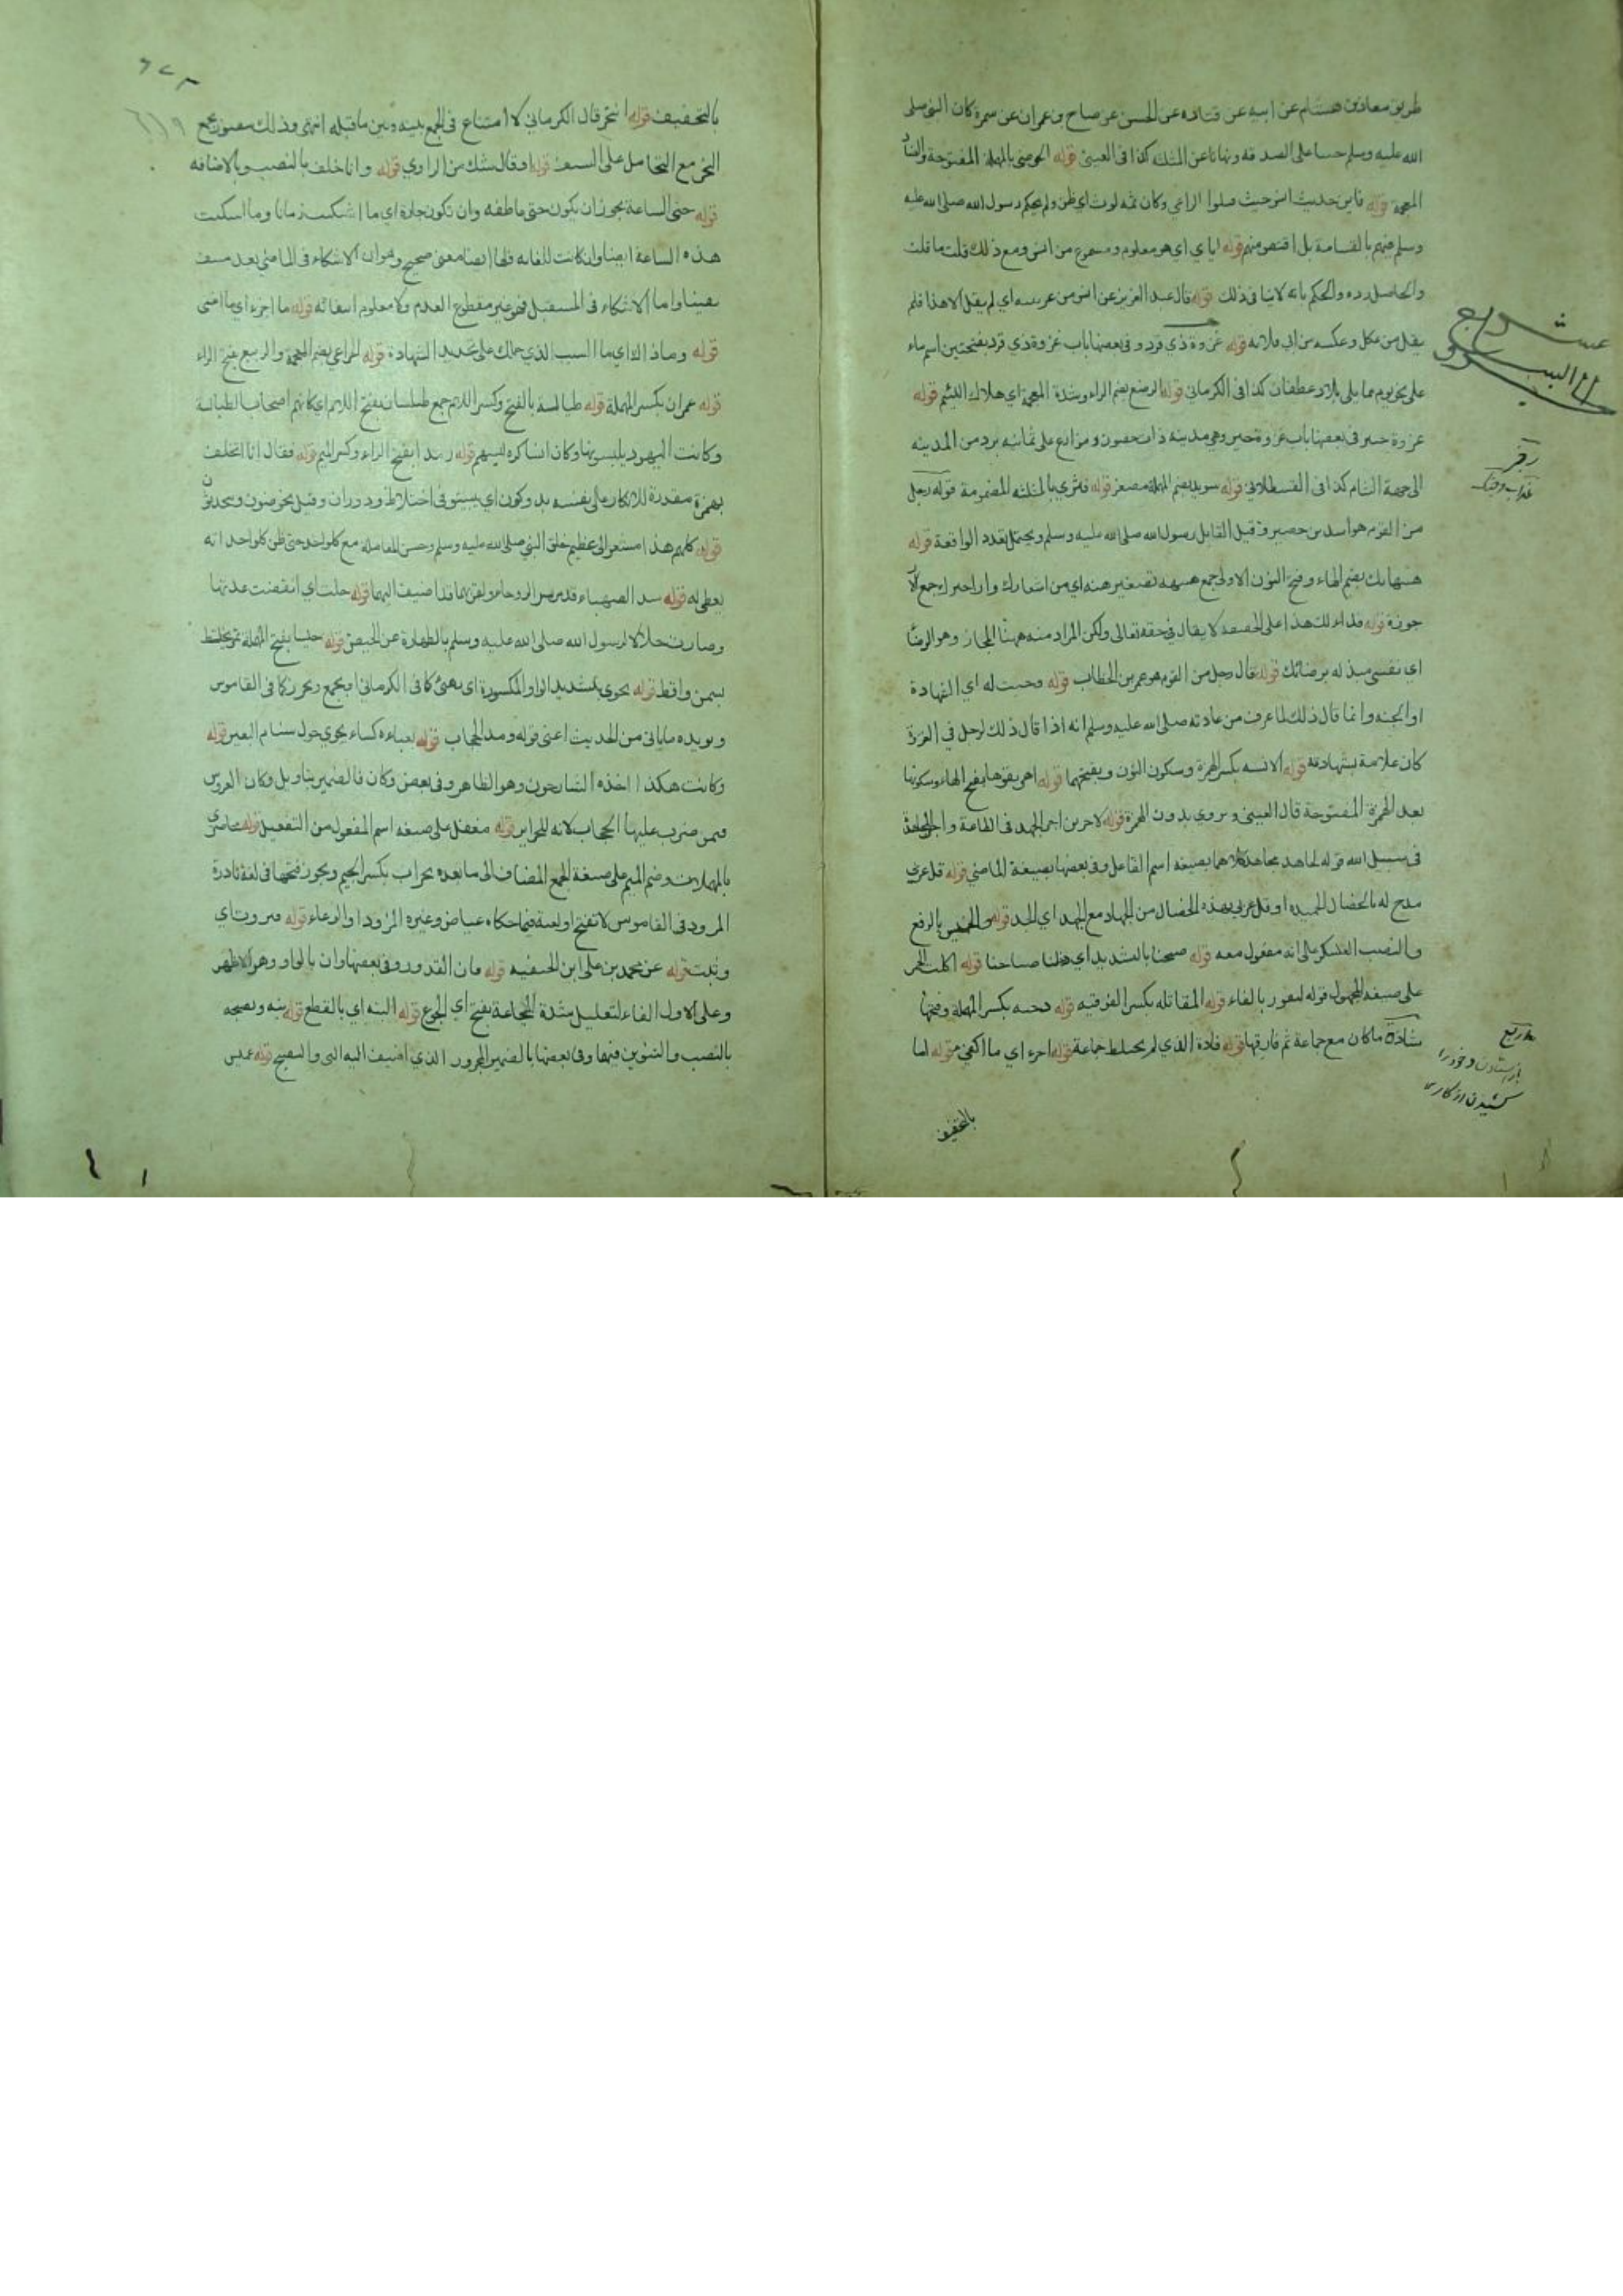 طريق معاذ بن هشام عن ابيه عن قتاده عن الحسن عن صباح بن عمران عن سمرة كان النبي صلى
الله عليه وسلم حسا على الصدقه ونهانا عن المثله كذا في العيني قوله الحوضي بالمهملة المفتوحة والضاد
المعجمة قوله فاين حديث انس حيث صلوا الراعي وكان ثمه لوث اي ظن ولم يحكم رسول الله صلى الله عليه
وسلم فيهم بالقسامة بل اقتص منهم قوله اياي اي هو معلوم ومسموع من انس ومع ذلك قلت ما قلت
والحاصل رده والحكم بانه لا نيا في ذلك قوله قال عبد العزيز عن انس من عرينه اي لم يقل الا هذا فلم
يقل من عكل وعكسه من ابي قلابه قوله غزوة ذي قرد وفي بعضها باب غزوة ذي قرد بفتحتين اسم ماء
على نحو يوم مما يلي بلاد غطفان كذا في الكرماني قوله الرضع بضم الراء وشدة المعجمة اي هلاك اللئيم قوله
غزوة خيبر في بعضها باب غزوة خيبر وهي مدينه ذات حصون ومزارع على ثمانيه برد من المدينه
الى جهة الشام كذا في القسطلاني قوله سويد بضم المهملة مصغر قوله فثري بالمثلثه المضمومة قوله رجل
من القوم هو اسد بن حضير وقيل القايل رسول الله صلى الله عليه وسلم ويحتمل تعدد الواقعة قوله
هنيهاتك بضم الهاء وفتح النون الاولى جمع هنيهه تصغير هنه اي من اشعارك واراجيزك جمع
جوزة قوله فداء لك هذا على الحقيقه لا يقال في حقه تعالى ولكن المراد منه ههنا المجاز وهو الرضا
اي نفسي مبذله برضائك قوله قال رجل من القوم هو عمر بن الخطاب قوله وجبت له اي الشهادة
او الجنه وانما قال ذلك لما عرف من عادته صلى الله عليه وسلم انه اذا قال ذلك لرجل في الغزوة
كان علامة بشهادته قوله الانسه بكسر الهمزة وسكون النون وبفتحهما قوله اهريقوها بفتح الهاء وسكونها
بعد الهمزة المفتوحة قال العيني ويروي بدون الهمزة قوله لاجرين اجر الجهد في الطاعة واجر المجاهدة
في سبيل الله قوله لجاهد مجاهد كلاهما بصيغه اسم الفاعل وفي بعضها بصيغة الماضي قوله قل عربي
مدح له بالخصال الحميده او قل عربي بهذه الخصال من الجهاد مع الجهد اي الجد قوله والخميس بالرفع
والنصب العسكر على انه مفعول معه قوله صبحنا بالتشديد اي صباحنا قوله اكلت الحمر
على صيغه المجهول قوله لتفور بالفاء قوله المقاتله بكسر الفوقيه قوله دحيه بكسر المهملة وفتحها
شاذة ما كان مع جماعة ثم فارقها قوله فاذة الذي لم يختلط جماعة قوله اجزء اي ما اكفى قوله لما
بالتخفيف
رفيع
باز استادن وخود را
كشيدن از كاري
بالتخفيف قوله انتحر قال الكرماني لا امتناع في الجمع بينه وبين ما قبله انتهى وذلك مقصور جمع
النحر مع التحامل على السيف قوله او قال شك من الراوي قوله وانا خلف بالنصب وبالاضافه
قوله حتى الساعة يجوز ان يكون حتى عاطفه وان تكون جارة اي ما اشتكيت زمانا وما اشتكيت
هذه الساعة ايضا وان كانت للغايه فلها ايضا معنى صحيح وهو ان الاشتكاء في الماضي بعد
يقينا واما الاشتكاء في المستقبل فهو غير مقطوع العدم ولا معلوم انتفائه قوله ما اجزء اي ما اغنى
قوله وما ذاك اي ما السبب الذي حملك على تجديد الشهادة قوله الخزاعي بضم المعجمة والربيع بفتح الراء
قوله عمران بكسر المهملة قوله طيالسة بالفتح وكسر اللام جمع طيلسان بفتح اللام اي كانهم اصحاب الطيالسة
وكانت اليهود يلبسونها وكان انسا كره لبسهم قوله رمدا بفتح الراء وكسر الميم قوله فقال انا اتخلف
بهمزة مقدرة للانكار على نفسه يدوكون اي يبيتو في اختلاط ودوران وقيل يخوضون ويحدثون
قوله كلهم هذا مشعر الى عظيم خلق النبي صلى الله عليه وسلم وحسن المعامله مع كل واحد حتى ظن كل واحد انه
يعطى له قوله سد الصهباء قد مر سد الروحاء ولقربهما قد اضيف اليهما قوله حلت اي انقضت عدتها
وصارت حلالا لرسول الله صلى الله عليه وسلم بالطهارة عن الحيض قوله حيسا بفتح المهملة تمر يخلط
بسمن واقط قوله يحوي بتشديد الواو المكسورة اي يهيئ كما في الكرماني او يجمع ويحرز كما في القاموس
ويويده ماياتي من الحديث اعني قوله ومد الحجاب قوله بعباءة كساء يحوي حول سنام البعير قوله
وكانت هكذا اخذه الشارحون وهو الظاهر وفي بعض وكان فالضمير بتاويل وكان العروس
فيمن ضرب عليها الحجاب لانه للحراير قوله مغفل على صيغه اسم المفعول من التفعيل قوله محاصري
بالمهملات وضم الميم على صيغة الجمع المضاف الى ما بعده بجراب بكسر الجيم ويجوز فتحها في لغة نادرة
المرود في القاموس لا تفتح او لغية فيما حكاه عياض وغيره المزود او الوعاء قوله فنزوت اي
وثبت قوله عن محمد بن علي ابن الحنفيه قوله فان القدور وفي بعضها وان بالواو وهو الاظهر
وعلى الاول الفاء لتعليل شدة المجاعة بفتح اي الجوع قوله البته اي بالقطع قوله نيه ونضجه
بالنصب والتنوين فيهما وفي بعضها بالضمير المجرور الذي اضيف اليه الني والنضيج قوله عدي